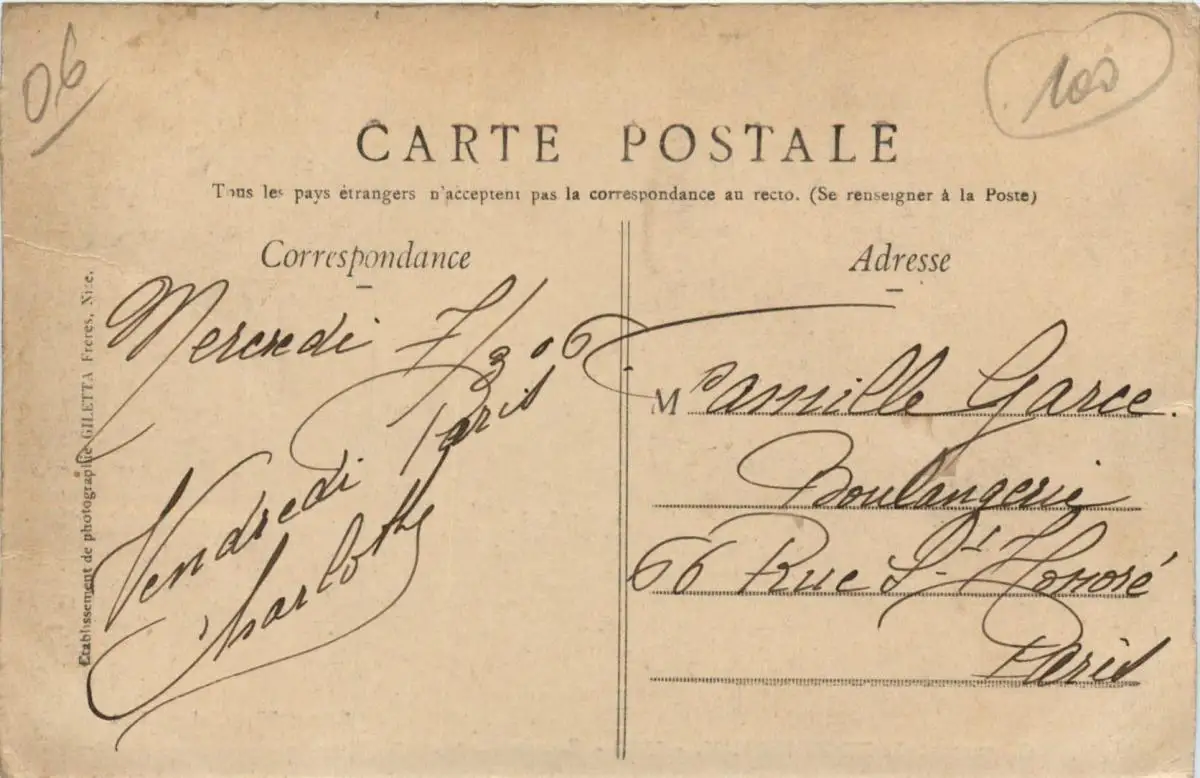 06
100
CARTE POSTALE
Tous les pays étrangers n'acceptent pas la correspondance au recto. (Se renseigner à la Poste)
Correspondance
Adresse
Etablissement de photographie GILETTA Frères, Nice.
Mercredi 7/3 06
Vendredi Paris
Charlotte
M Camille Garce.
Boulangerie
66 Rue St Honoré
Paris